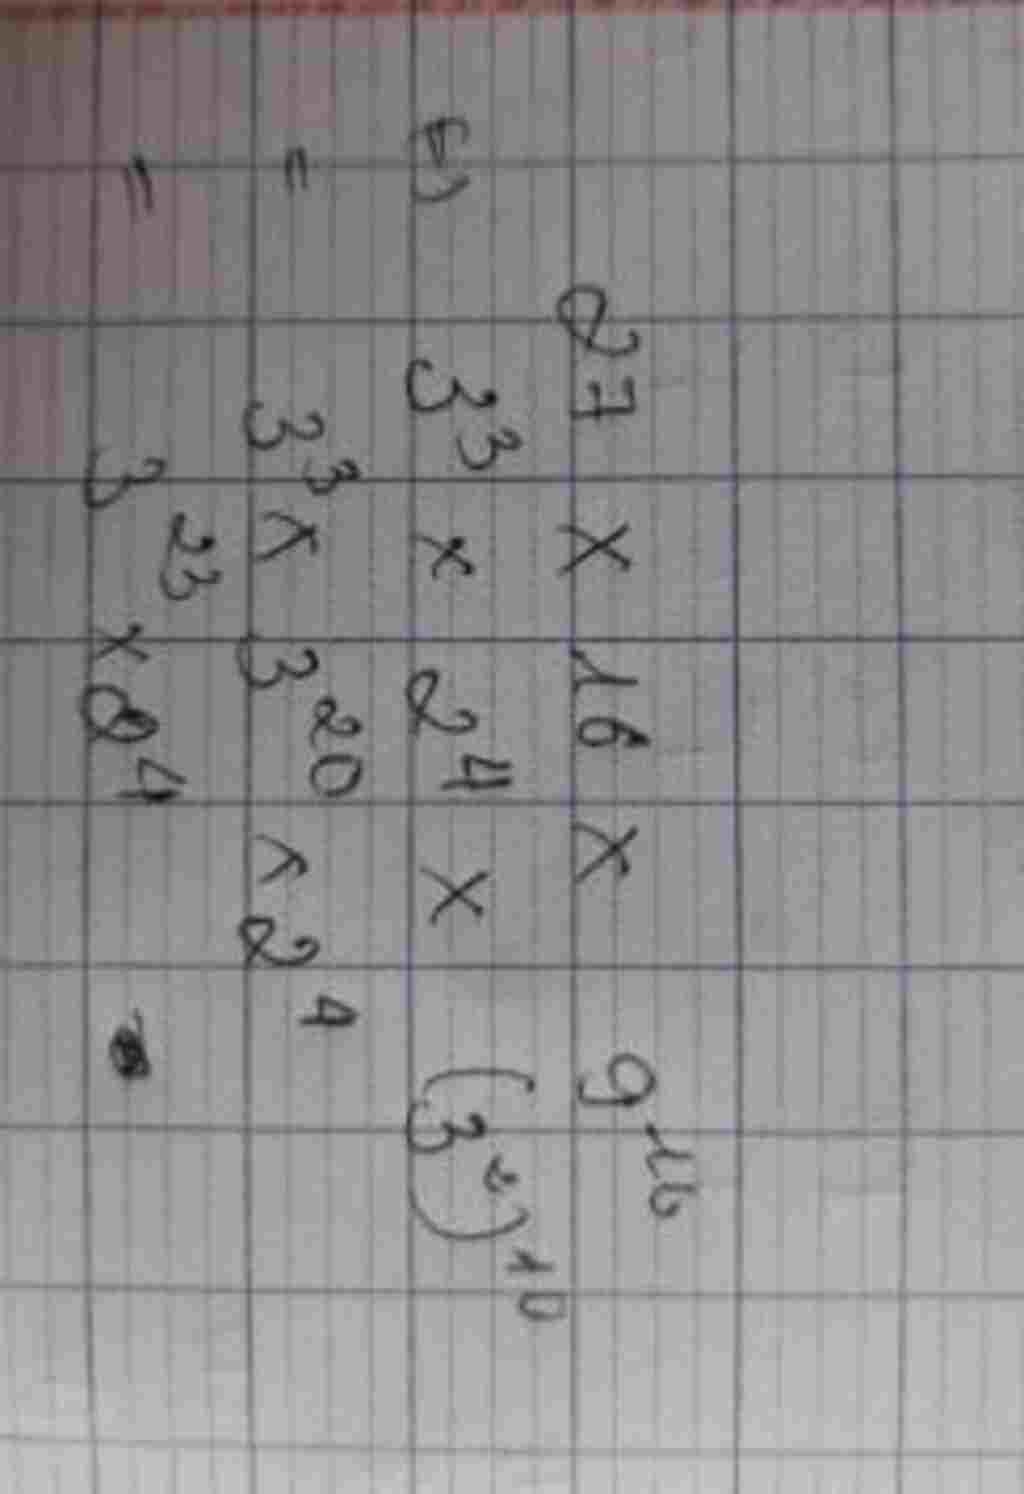 27 × 16 × 9^16
b) 3^3 × 2^4 × (3^2)^10
= 3^3 × 3^20 × 2^4
= 3^23 × 2^4